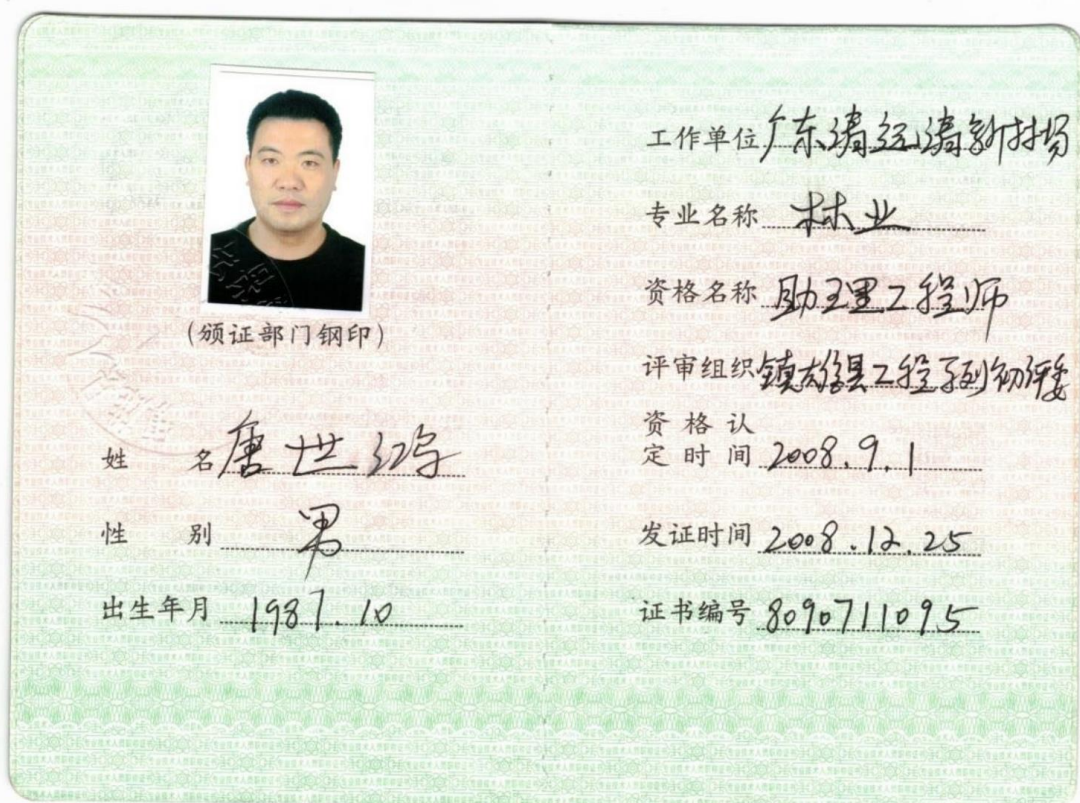 (颁证部门钢印)
姓 名 唐世鸿
性 别 男
出生年月 1987.10
工作单位 广东清远清新林场
专业名称 林业
资格名称 助理工程师
评审组织 镇雄县工程系列初评委
资格认
定时间 2008.9.1
发证时间 2008.12.25
证书编号 8090711095